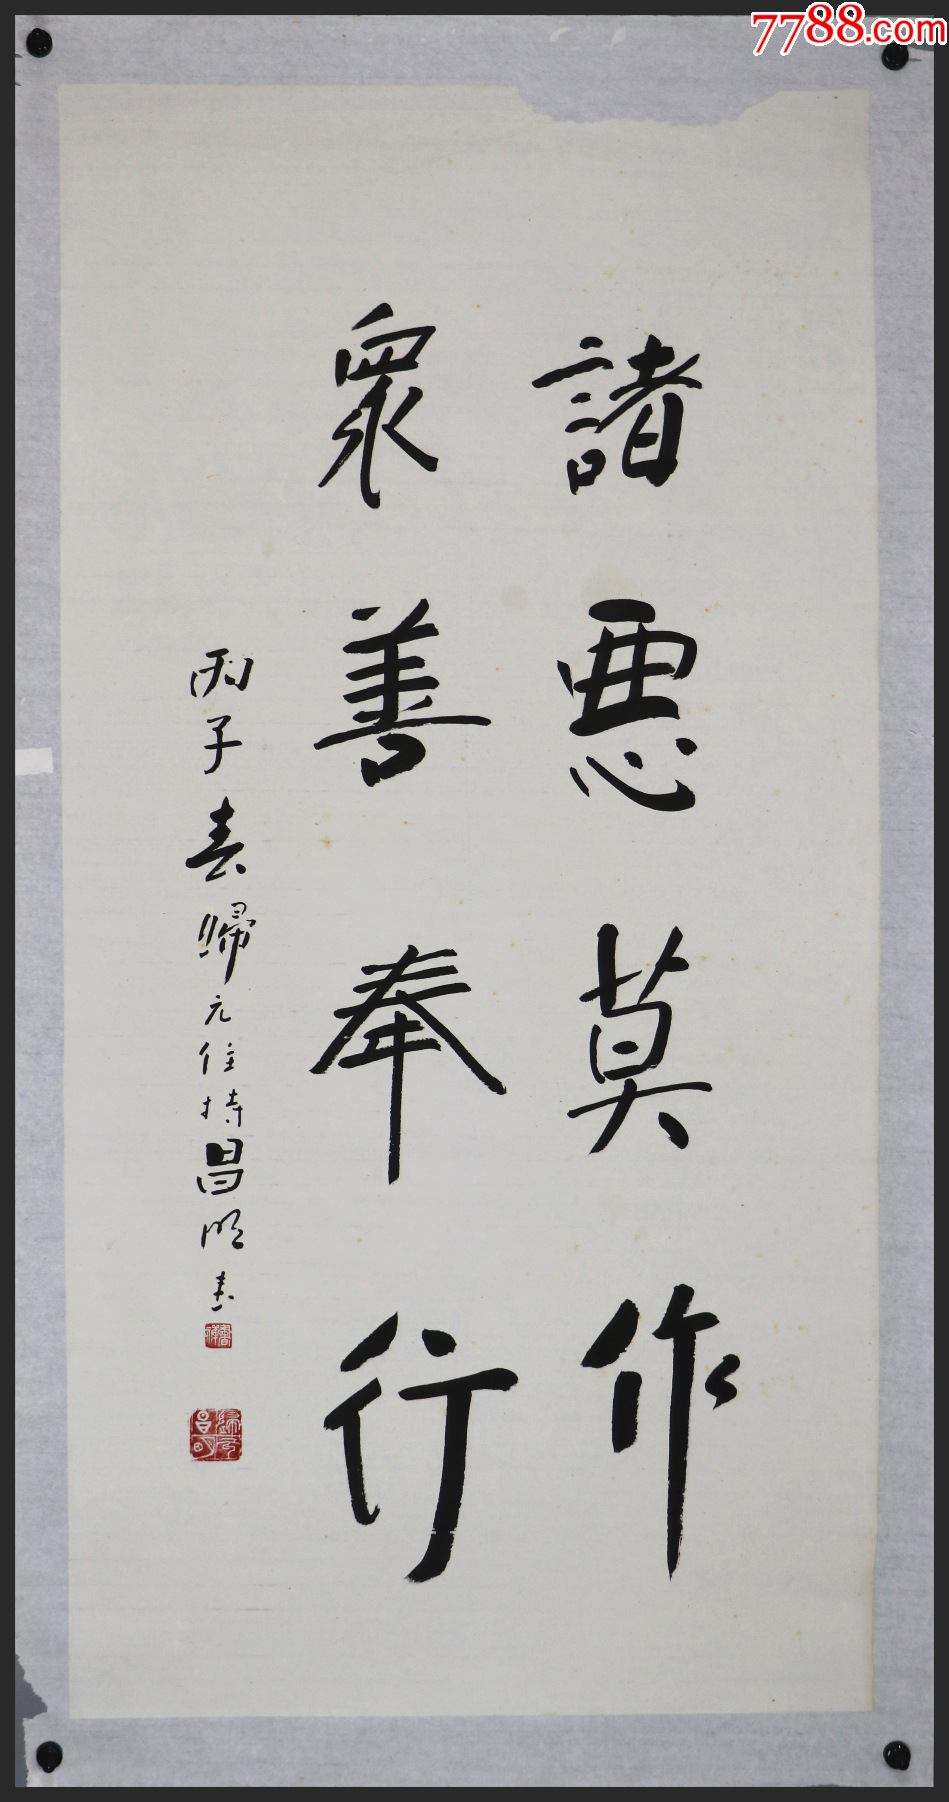 7788.com
諸惡莫作
眾善奉行
丙子春歸元住持昌明书